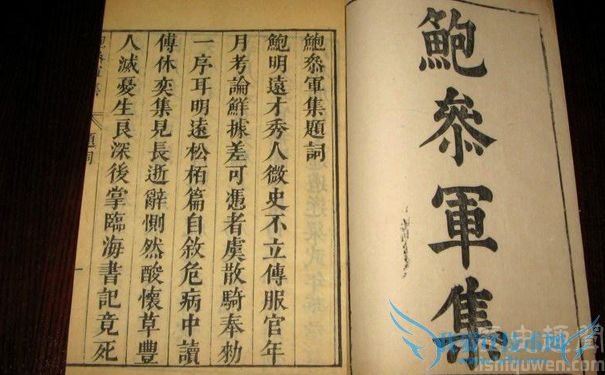 鮑叅軍集
鮑叅軍集題詞
鮑明遠才秀人微史不立傳服官年
月考論鮮據差可憑者虞散騎奉勑
一序耳明遠松栢篇自敘危病中讀
傅休奕集見長逝辭惻然酸懷草豐
人滅憂生良深後掌臨海書記竟死
題詞
ishiquwen.com